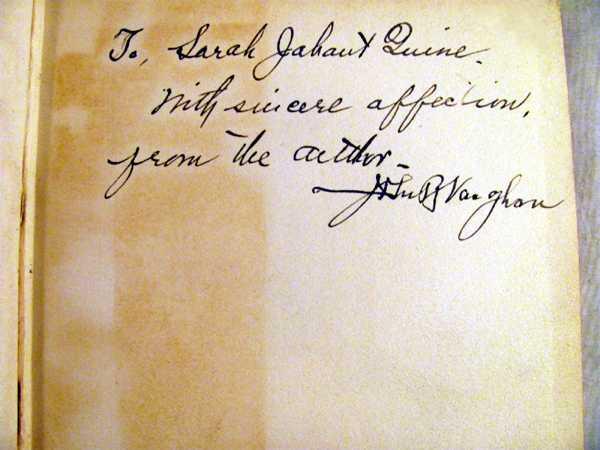 To, Sarah Jahant Quine.
With sincere affection,
from the author_
Vaughan